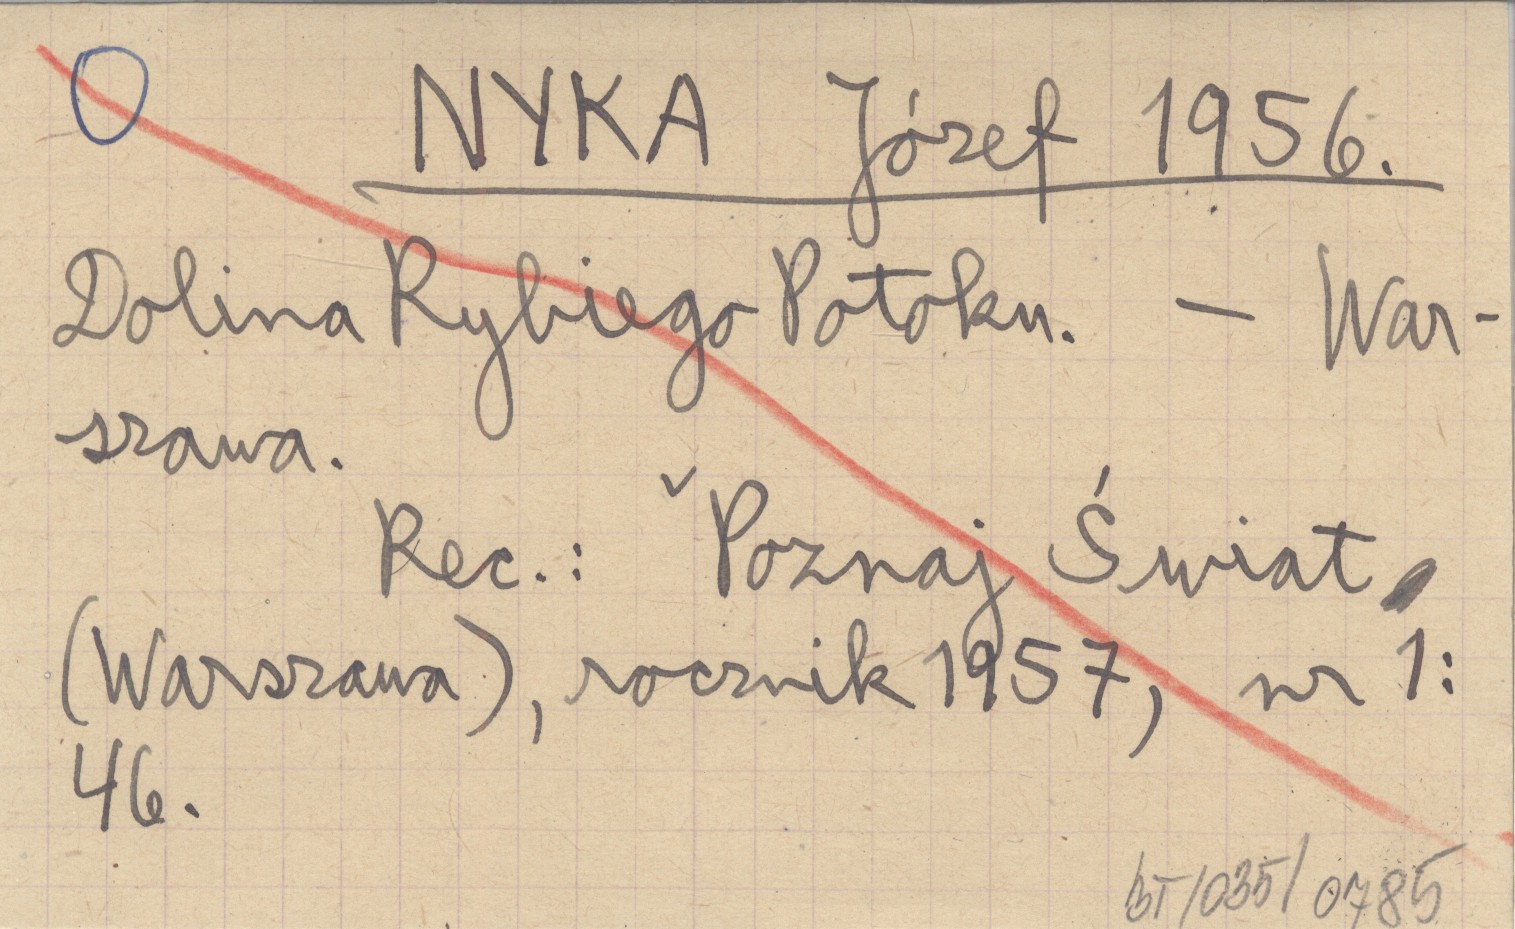 NYKA Józef 1956.
Dolina Rybiego Potoku. — War-
szawa.
Rec.: ˇPoznaj Świat
(Warszawa), rocznik 1957, nr 1:
46.
BT/035/0785